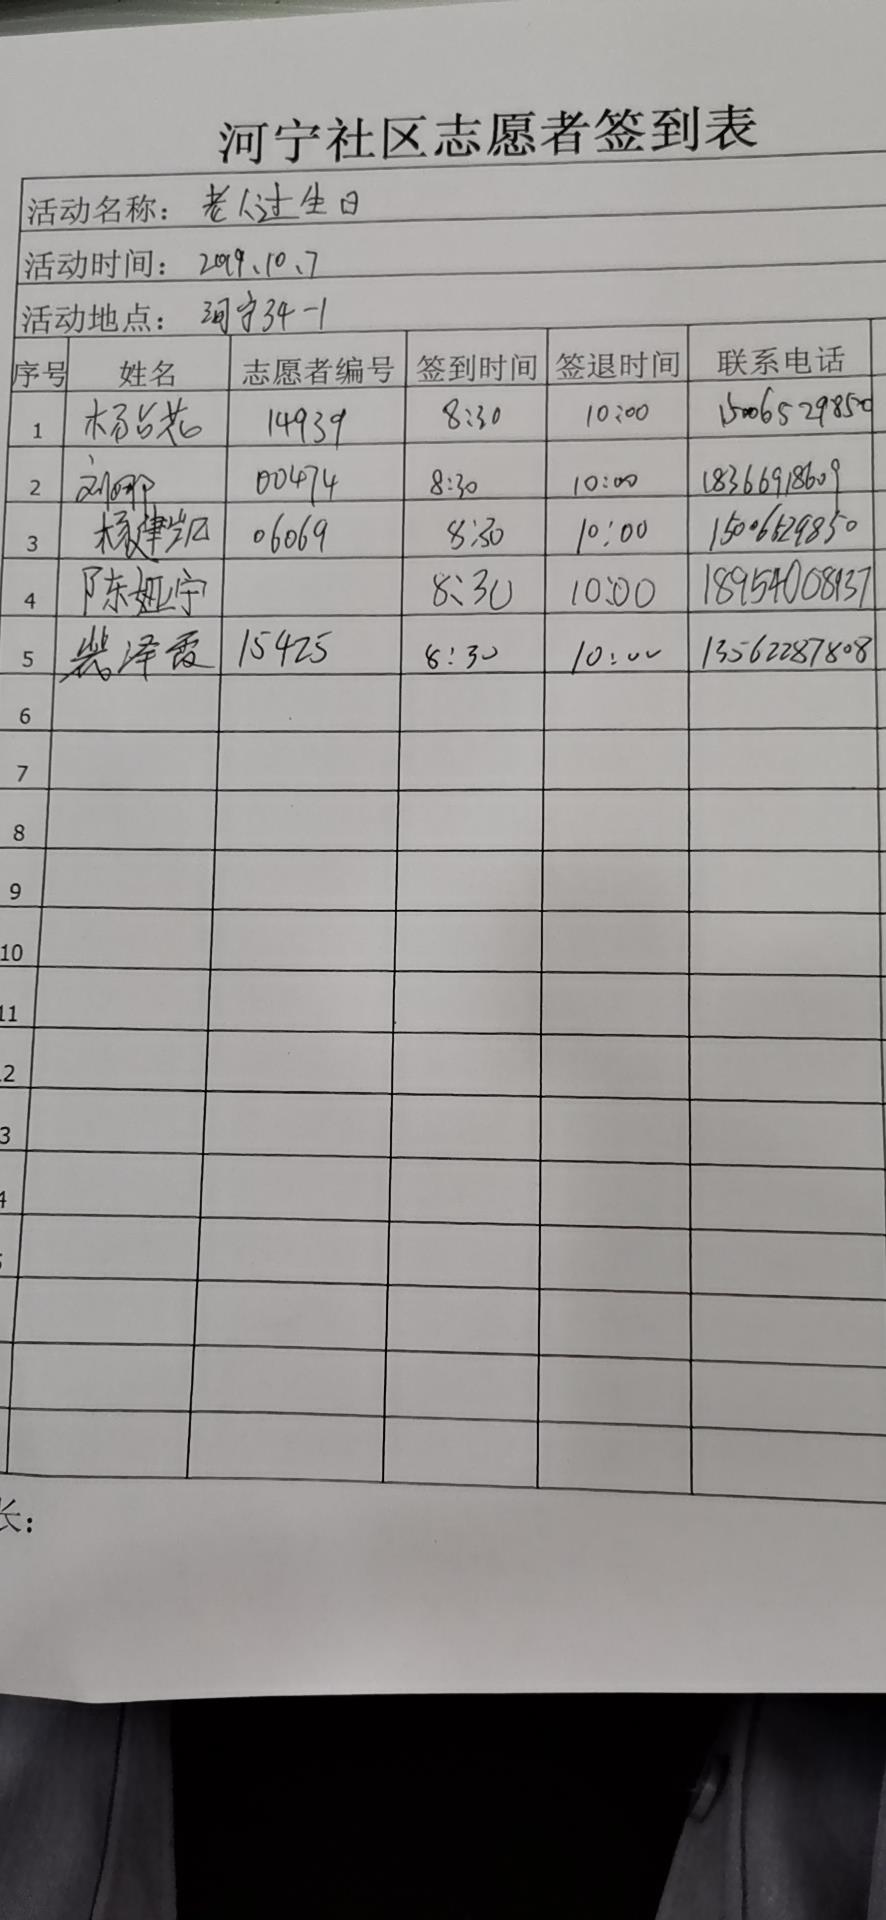 河宁社区志愿者签到表
活动名称：老人过生日
活动时间：2019、10、7
活动地点：河宁34-1
序号 姓名 志愿者编号 签到时间 签退时间 联系电话
1 14939 8:30 10:00 15006529850
2 刘娜 00474 8:30 10:00 18366918609
3 杨津凯 06069 8:30 10:00 15006529850
4 陈娅宁 8:30 10:00 18954008137
5 裴泽霞 15425 8:30 10:00 13562287808
6
7
8
9
10
11
长：